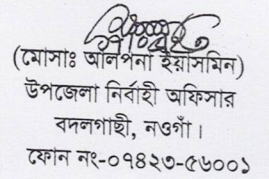 (মোসাঃ আলপনা ইয়াসমিন)
উপজেলা নির্বাহী অফিসার
বদলগাছী, নওগাঁ।
ফোন নং-০৭৪২৩-৫৬০০১